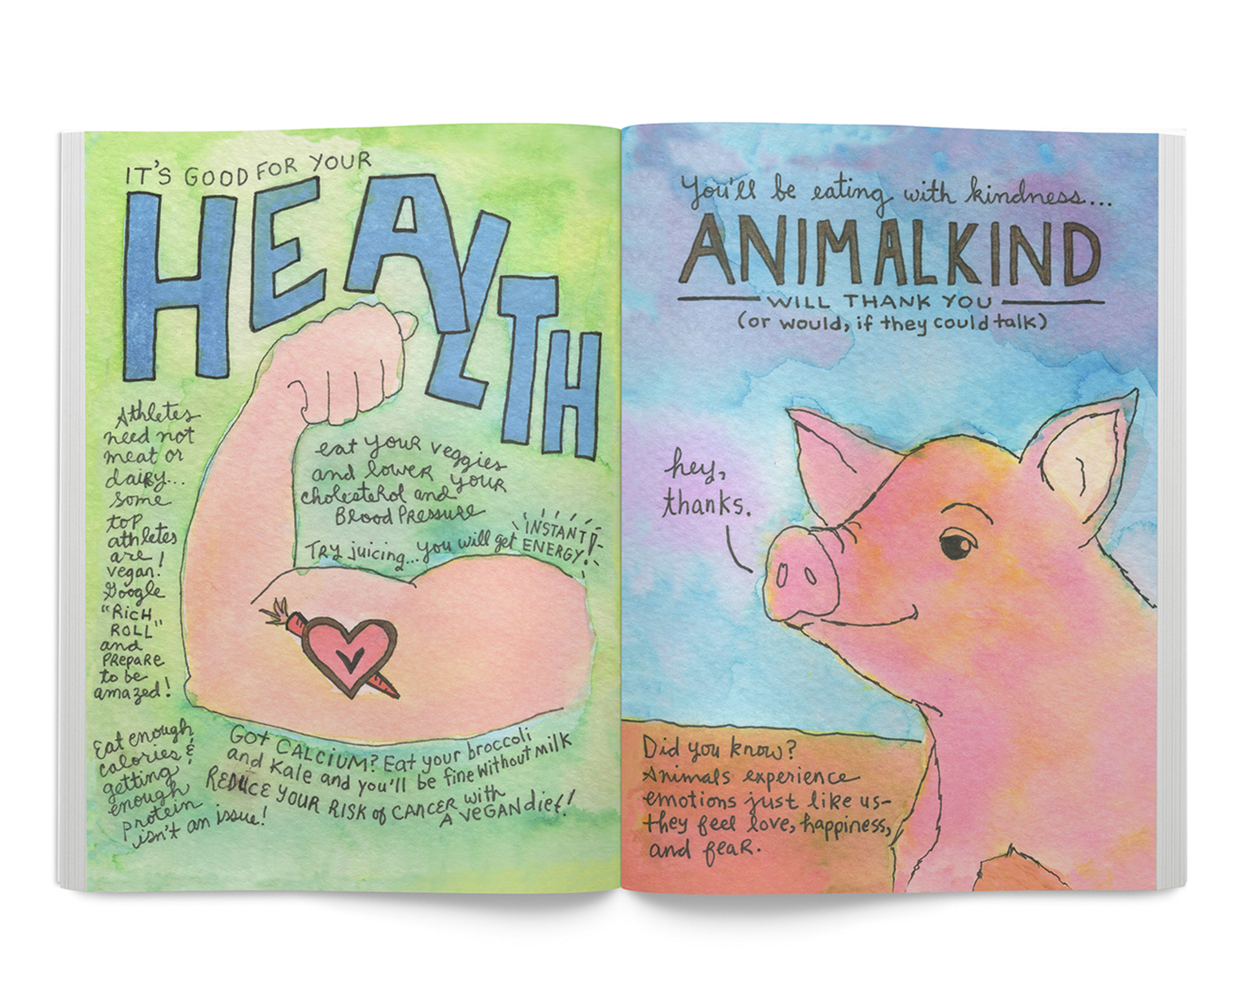 IT'S GOOD FOR YOUR
HEALTH
Athletes
need not
meat or
dairy...
some
top
athletes
are
vegan!
Google
"RICH
ROLL"
and
PREPARE
to be
amazed!
eat YOUR veggies
and lower YOUR
cholesterol and
Blood PRESSURE
TRY juicing... you will get INSTANT
ENERGY!
V
Eat enough
calories &
getting
enough
protein
isn't an issue!
GOT CALCIUM? Eat your broccoli
and Kale and you'll be fine without milk
REDUCE YOUR RISK OF CANCER with
A VEGAN diet!
You'll be eating with kindness...
ANIMALKIND
WILL THANK YOU
(or would, if they could talk)
hey,
thanks.
Did you know?
Animals experience
emotions just like us-
they feel love, happiness,
and fear.